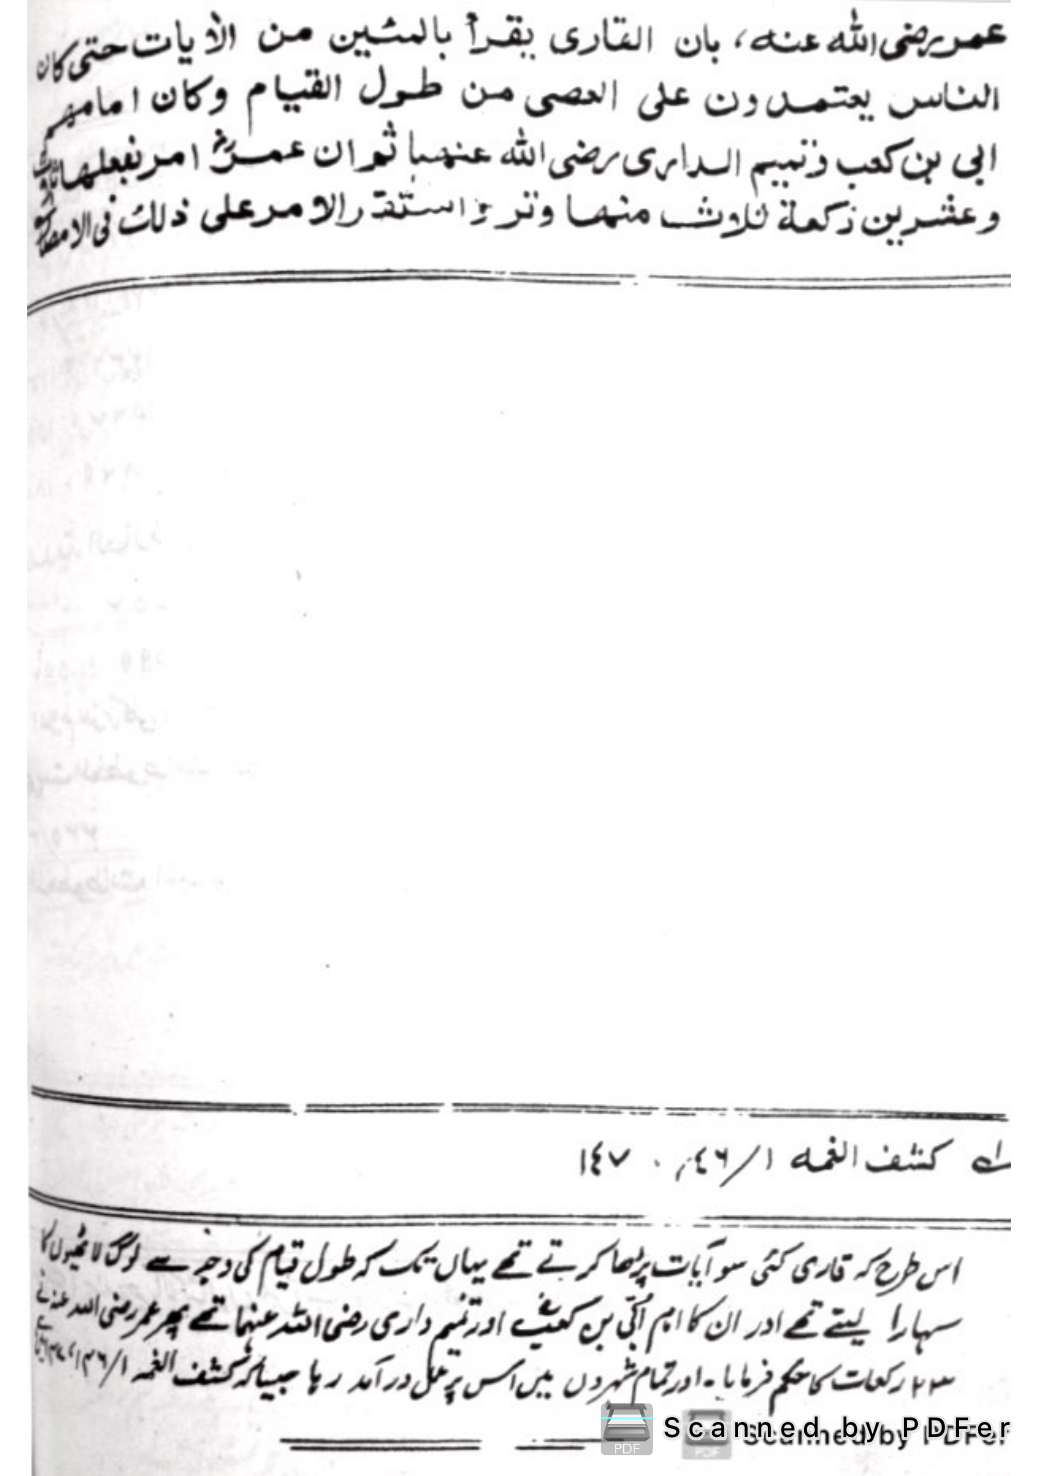 عمر رضی الله عنه، بان القاری یقرأ بالمئین من الآیات حتی کان
الناس یعتمدون علی العصی من طول القیام وکان امامهم
ابی بن کعب وتمیم الداری رضی الله عنهما ثم ان عمرؓ امر بفعلها
وعشرین رکعة ثلاث منها وتر واستقر الامر علی ذلك فی
کشف الغمه ۱/ ۱٤۷
اس طرح که قاری کئی سو آیات پڑھا کرتے تھے یہاں تک که طول قیام کی وجہ سے لوگ لاٹھیوں کا
سہارا لیتے تھے اور ان کا امام اُبّی بن کعبؓ اور تمیم داری رضی اللہ عنہما تھے پھر عمر رضی اللہ عنہ نے
۲۳ رکعات کا حکم فرمایا۔ اور تمام شہروں میں اس پر عمل در آمد رہا جیسا کہ کشف الغمہ
Scanned by PDFer
Scanned by PDFer